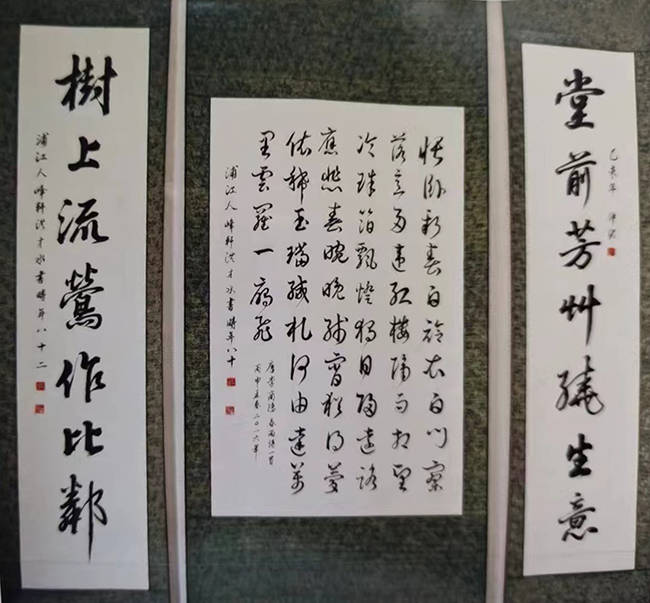 堂前芳艸繞生意
己亥年
悵卧新春白袷衣白门寥
落意多違红樓隔雨相望
冷珠箔飄燈獨自歸遠路
應悲春晼晚殘宵猶得夢
依稀玉璫緘札何由達萬
里雲羅一雁飛
唐李商隱春雨詩一首
丙申孟春二〇一六年
浦江人峰軒洪才水書時年八十
樹上流鶯作比鄰
浦江人峰軒洪才水書時年八十二